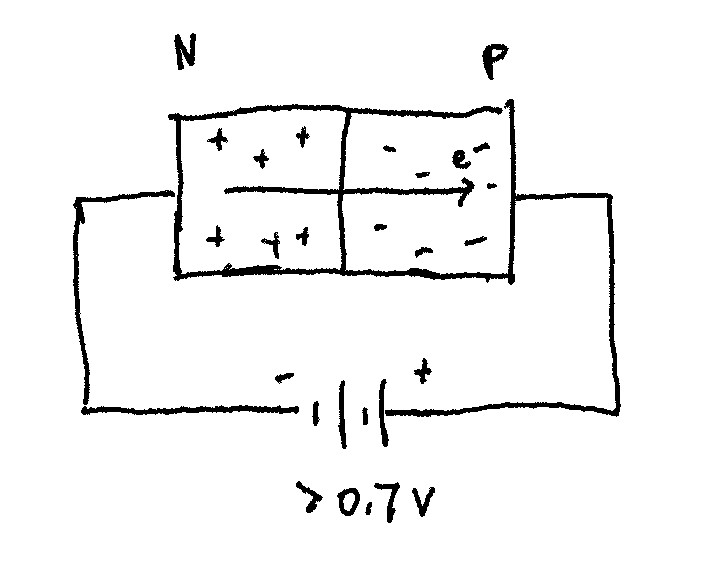 N P
+ + + - -
+ e -
+ + + - - -
- +
> 0.7 V